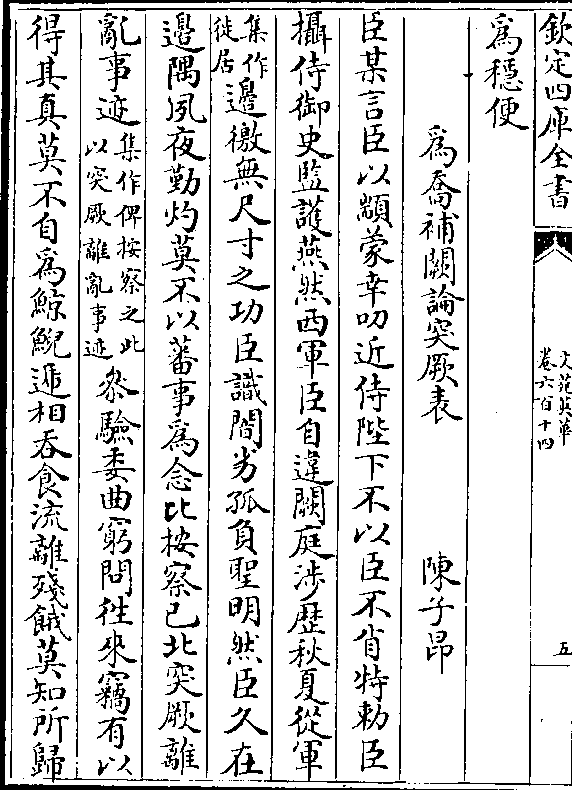 欽定四庫全書
文苑英華
卷六百十四
五
為穩便
為喬補闕論突厥表　陳子昂
臣某言臣以顓蒙幸叨近侍陛下不以臣不省特勑臣
攝侍御史監護燕然西軍臣自違闕庭涉歷秋夏從軍
集作徒居邊徼無尺寸之功臣識闇劣孤負聖明然臣久在
邊隅夙夜勤灼莫不以蕃事為念比按察已北突厥離
亂事迹集作俾按察之此以突厥離亂事迹叅驗委曲窮問徃來竊有以
得其真莫不自為鯨鯢遞相吞食流離殘餓莫知所歸